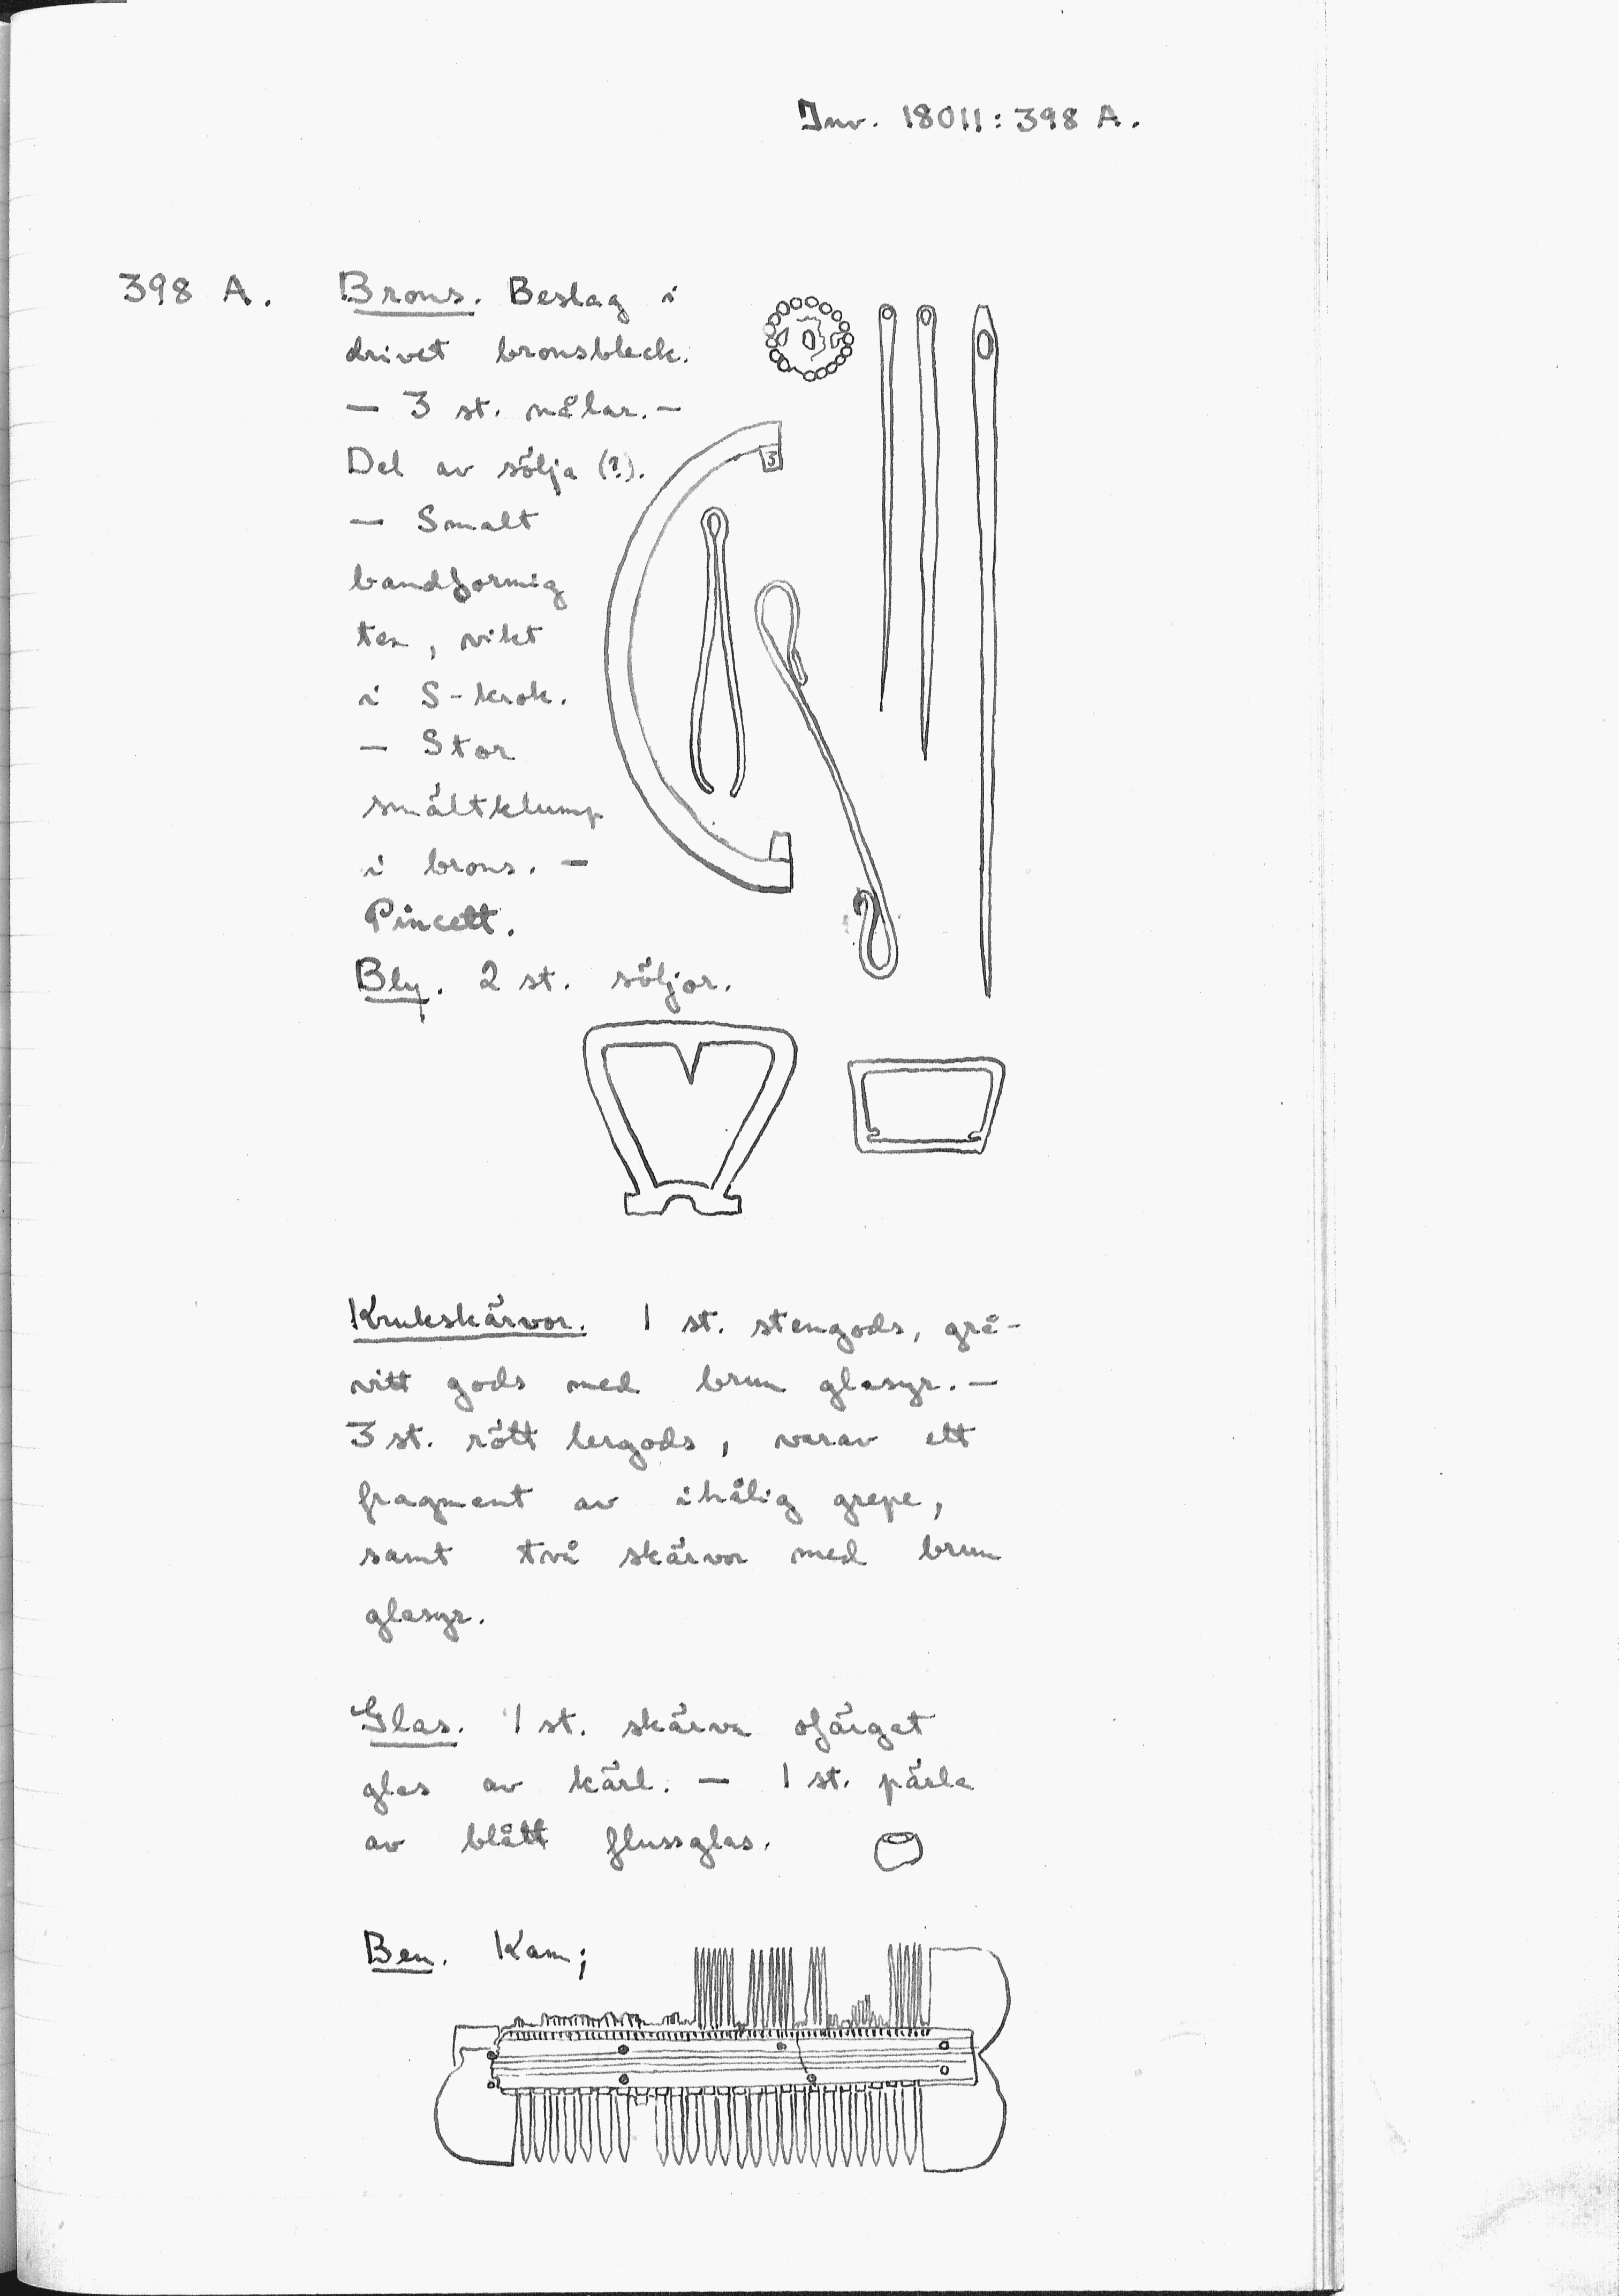 Inv. 18011:398 A.
398 A. Brons. Beslag i
drivet bronsbleck.
— 3 st. nålar. —
Del av sölja (?).
— Smalt
bandformig
ten, vikt
i S-krok.
— Stor
smältklump
i brons. —
Pincett.
Bly. 2 st. söljor.
Krukskärvor. 1 st. stengods, grå-
vitt gods med brun glasyr. —
3 st. rött lergods, varav ett
fragment av ihålig grepe,
samt två skärvor med brun
glasyr.
Glas. 1 st. skärva ofärgat
glas av kärl. — 1 st. pärla
av blått flussglas.
Ben. Kam;